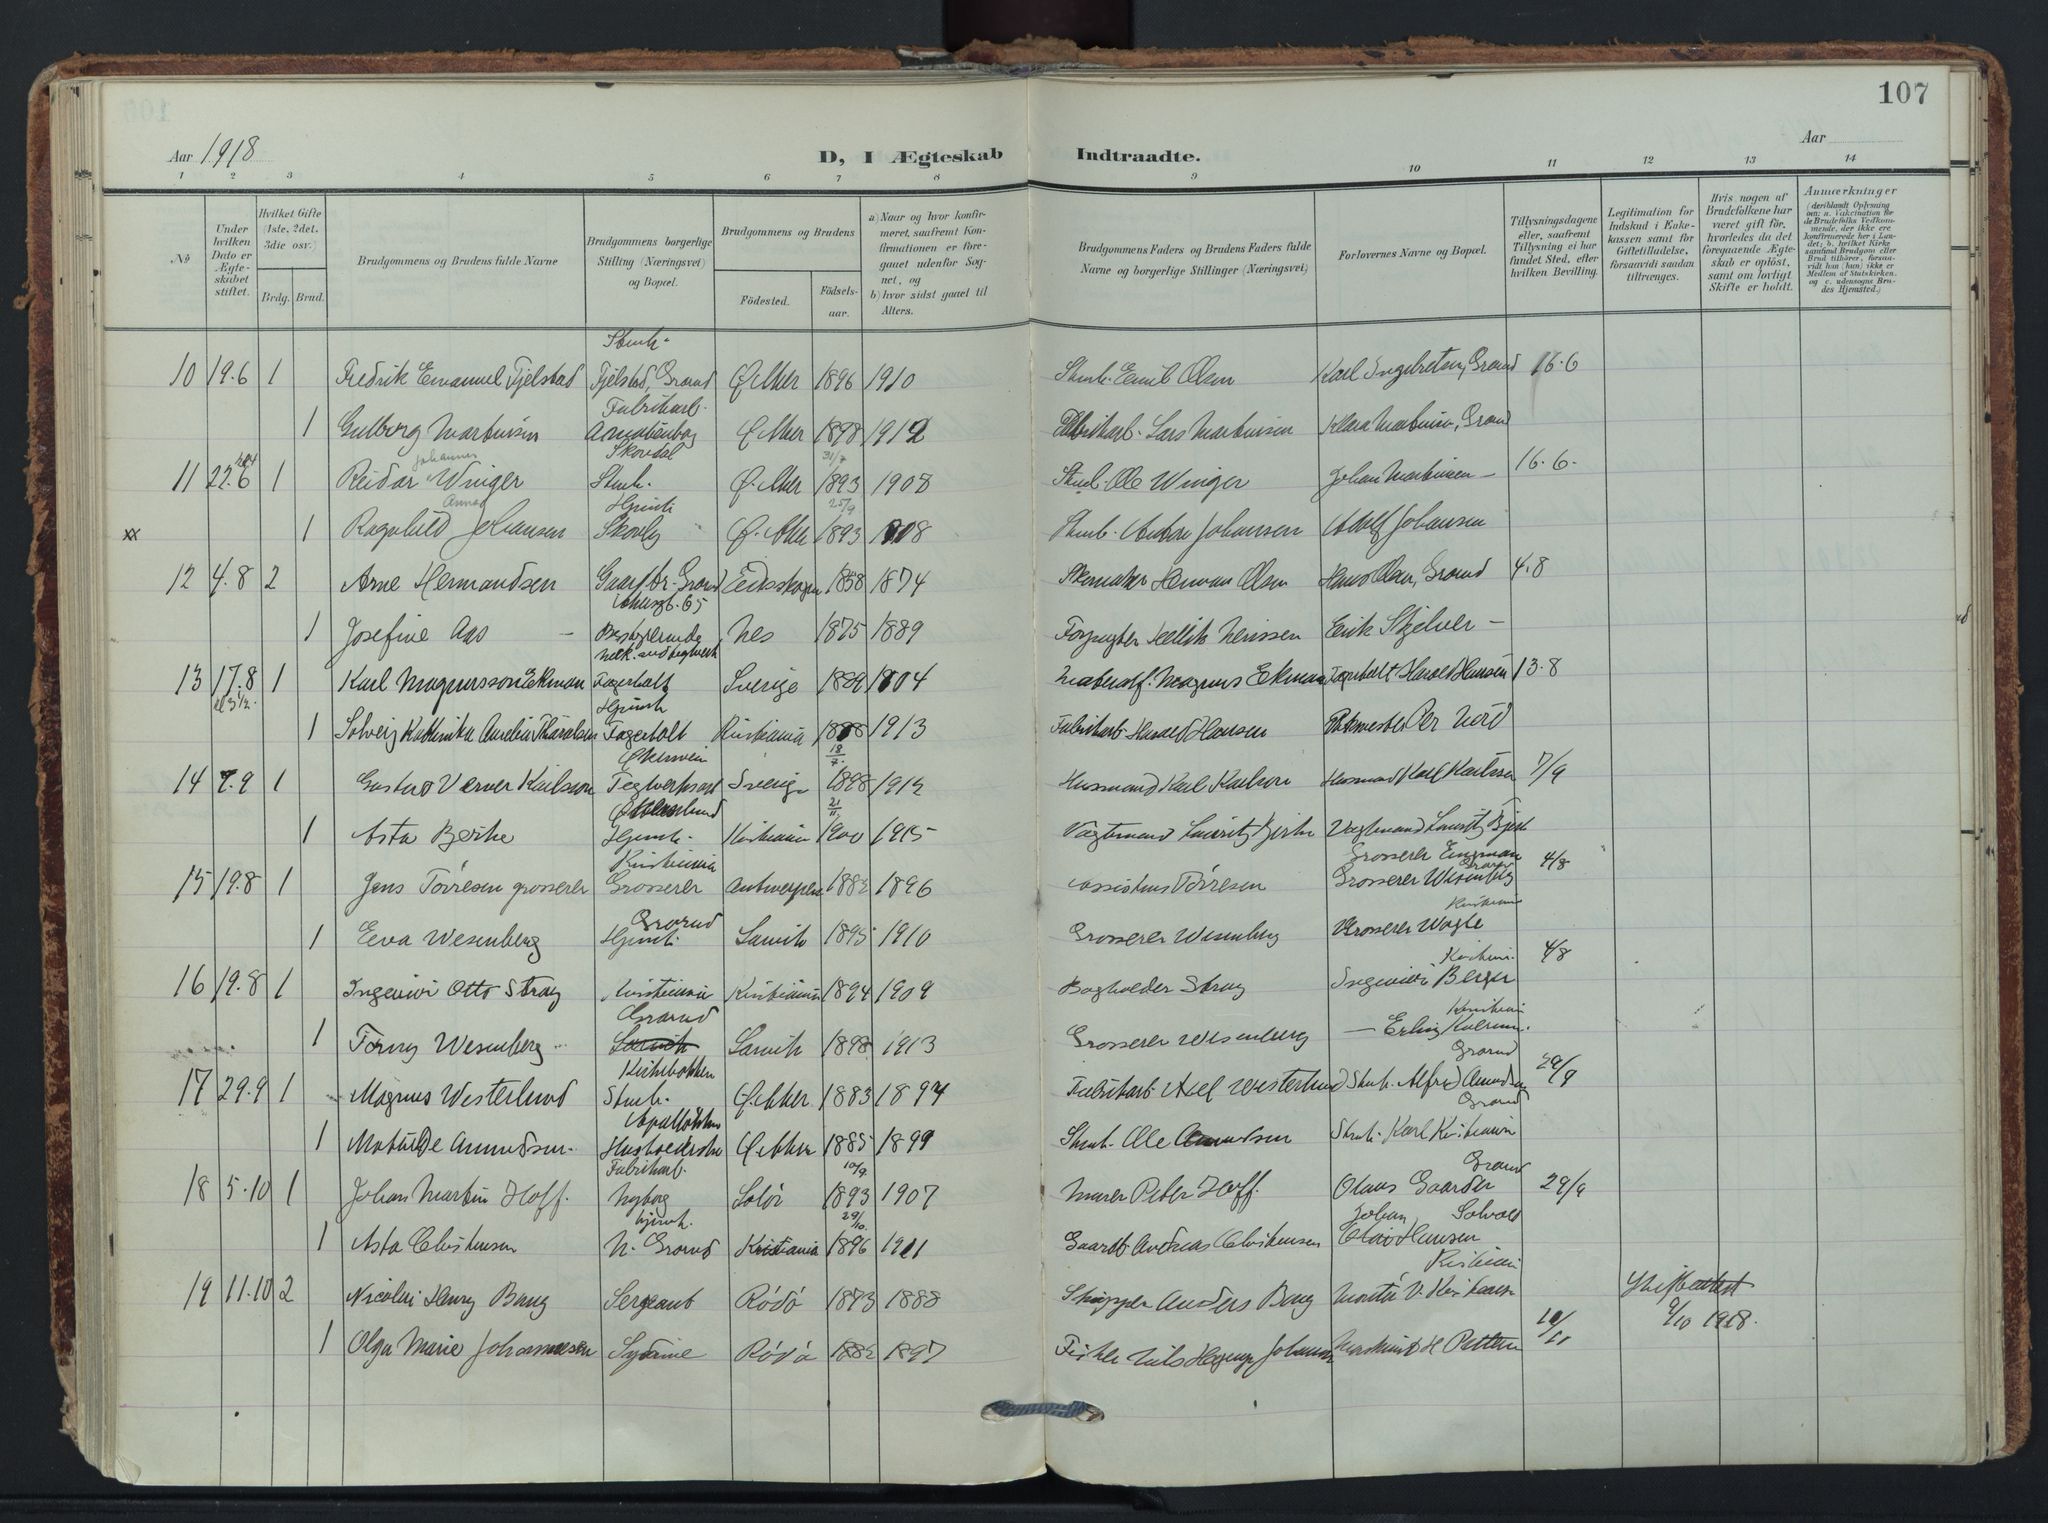 107
Aar 1918
D, I Ægteskab Indtraadte.
Aar
1 2 3 4 5 6 7 8 9 10 11 12 13 14
No
Under hvilken Dato er Ægteskabet stiftet.
Hvilket Gifte (1ste, 2det. 3die osv.)
Brdg. Brud.
Brudgommens og Brudens fulde Navne
Brudgommens borgerlige Stilling (Næringsvei) og Bopæl.
Brudgommens og Brudens
Födested.
Födselsaar.
a) Naar og hvor konfirmeret, saafremt Konfirmationen er foregaaet udenfor Sognet, og
b) hvor sidst gaaet til Alters.
Brudgommens Faders og Brudens Faders fulde Navne og borgerlige Stillinger (Næringsvei)
Forlovernes Navne og Bopæl.
Tillysningsdagene eller, saafremt Tillysning ei har fundet Sted, efter hvilken Bevilling.
Legitimation for Indskud i Enkekassen samt for Giftetilladelse, forsaavidt saadan tiltrænges.
Hvis nogen af Brudefolkene har været gift för, hvorledes da det foregaaende Ægteskab er oplöst, samt om lovligt Skifte er holdt.
Anmærkninger
(deriblandt Oplysning om: a. Vakcination for de Brudefolks Vedkommende, der ikke ere konfirmerede her i Landet; b. hvilket Kirkesamfund Brudgom eller Brud tilhörer, forsaavidt han (hun) ikke er Medlem af Statskirken. og c. udensogns Brudes Hjemsted.)
Stenh.
10 19.6 1 Fredrik Emanuel Fjelstad Fjelstad, Grorud Ø. Aker 1896 1910 Stenh. Emil Olsen Karl Ingebretsen, Grorud 16.6
Fabrikarb.
1 Gulborg Martinsen Ø. Aker 1898 1912 Lars Martinsen Klara Martinsen, Grorud
Johannes Skovdal 31/7
11 22.6 1 Reidar Winger Stenh. Ø. Aker 1893 1908 Stenh. Ole Winger Johan Martinsen 16.6.
Anna Hjemh. 25/9
xx 1 Ragnhild Johansen Skovly Ø. Aker 1893 1908 Stenh. Anton Johansen Adolf Johansen
12 4.8 2 Arne Hermandsen Gaardbr. Grorud Eidsskogen 1858 1874 Skomaker Herman Olsen Hans Olsen, Grorud 4.8
1 Josefine Aas Bestyrerinde Nes 1875 1889 Forpagter Nerissen Erik
13 17.8 1 Karl Magnusson Ekman Fagerholt Sverige 1889 1904 Magnus Ekman Fagerholt Harald Hansen 13.8
Hjemh.
1 Solveig Kathinka Aurelia Fagerholt Kristiania 1898 1913 Fabrikarb. Harald Hansen Per Nord
18/7.
14 7.9 1 Gustav Verner Karlsson Teglverksarb Sverige 1898 1912 Husmand Karl Karlson Husmand Karl Karlsson 7/9
21/11
1 Asta Bjerke Hjemh. Kristiania 1900 1915 Vagtmand Lauritz Bjerke Vagtmand Lauritz Bjerke
Kristiania Grosserer Engman
Grorud
15 19.8 1 Jens Tørresen grosserer Grosserer Antwerpen 1882 1896 Tørresen Grosserer Wesenberg 4/8
Grorud Kristiania
1 Eeva Wesenberg Hjemh. Larvik 1895 1910 Grosserer Wesenberg Grosserer Wagle
16 19.8 1 Ingeniør Otto Stray Kristiania Kristiania 1894 1909 Bogholder Stray Ingeniør Berger 4/8
Grorud Kristiania
1 Torny Wesenberg Larvik Larvik 1898 1913 Grosserer Wesenberg — Erling
Kirkebakken Grorud
17 29.9 1 Magnus Westerlund Stenh. Ø. Aker 1883 1897 Fabrikarb. Axel Westerlund Stenh. Alfred Amundsen 29/9
Grorud
1 Matilde Amundsen Husholderske Ø. Aker 1885 1899 Stenh. Ole Amundsen Stenh. Karl Kristiansen
Fabrikarb. 10/9. Grorud
18 5.10 1 Johan Martin Hoff. Nyborg Solør 1893 1907 Murer Peter Hoff. Olaus Gaarder 29/9
hjemh. 29/10. Johan Solvold
1 Asta Christensen N. Grorud Kristiania 1896 1911 Gaardb. Andreas Christensen Hansen
19 11.10 2 Nicolai Henry Bang Sergeant Rödö 1873 1888 Skipper Anders Bang Montör V. Kristiansen Skifteattest
9/10 1918.
1 Olga Marie Johannesen Syerske Rödö 1882 1897 Fisker Nils Hagerup Johannesen Maskinist H Pettersen 10/10